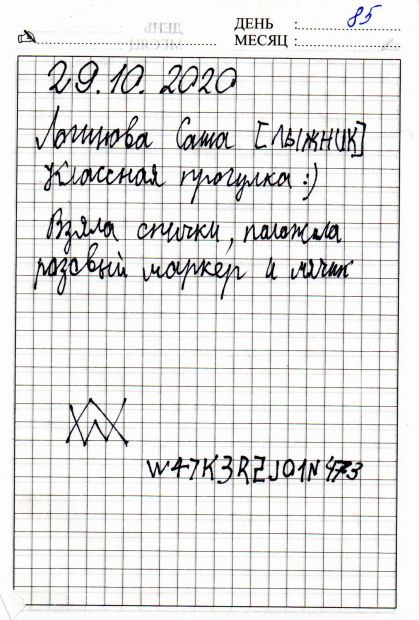 85
ДЕНЬ :
МЕСЯЦ :
29.10.2020
Логинова Саша [ЛЫЖНИК]
Классная прогулка :)
Взяла спички, положила
розовый маркер и мячик
W47K3RZJ01N473